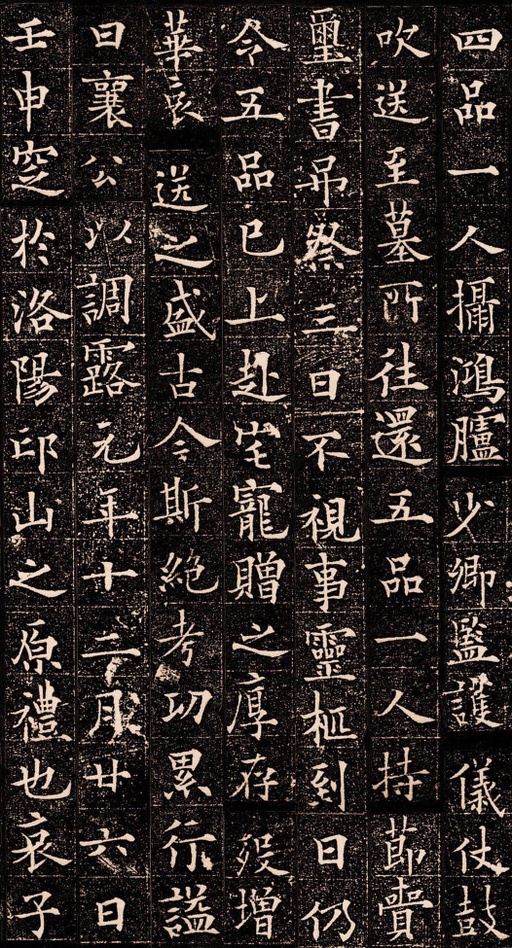 四品一人攝鴻臚少卿監護儀仗鼓
吹送至墓所往還五品一人持節賷
璽書吊祭三日不視事靈柩到日仍
令五品已上赴宅寵贈之厚存歿增
華哀送之盛古今斯絕考功累行謚
曰襄公以調露元年十二月廿六日
壬申窆於洛陽邙山之原禮也哀子